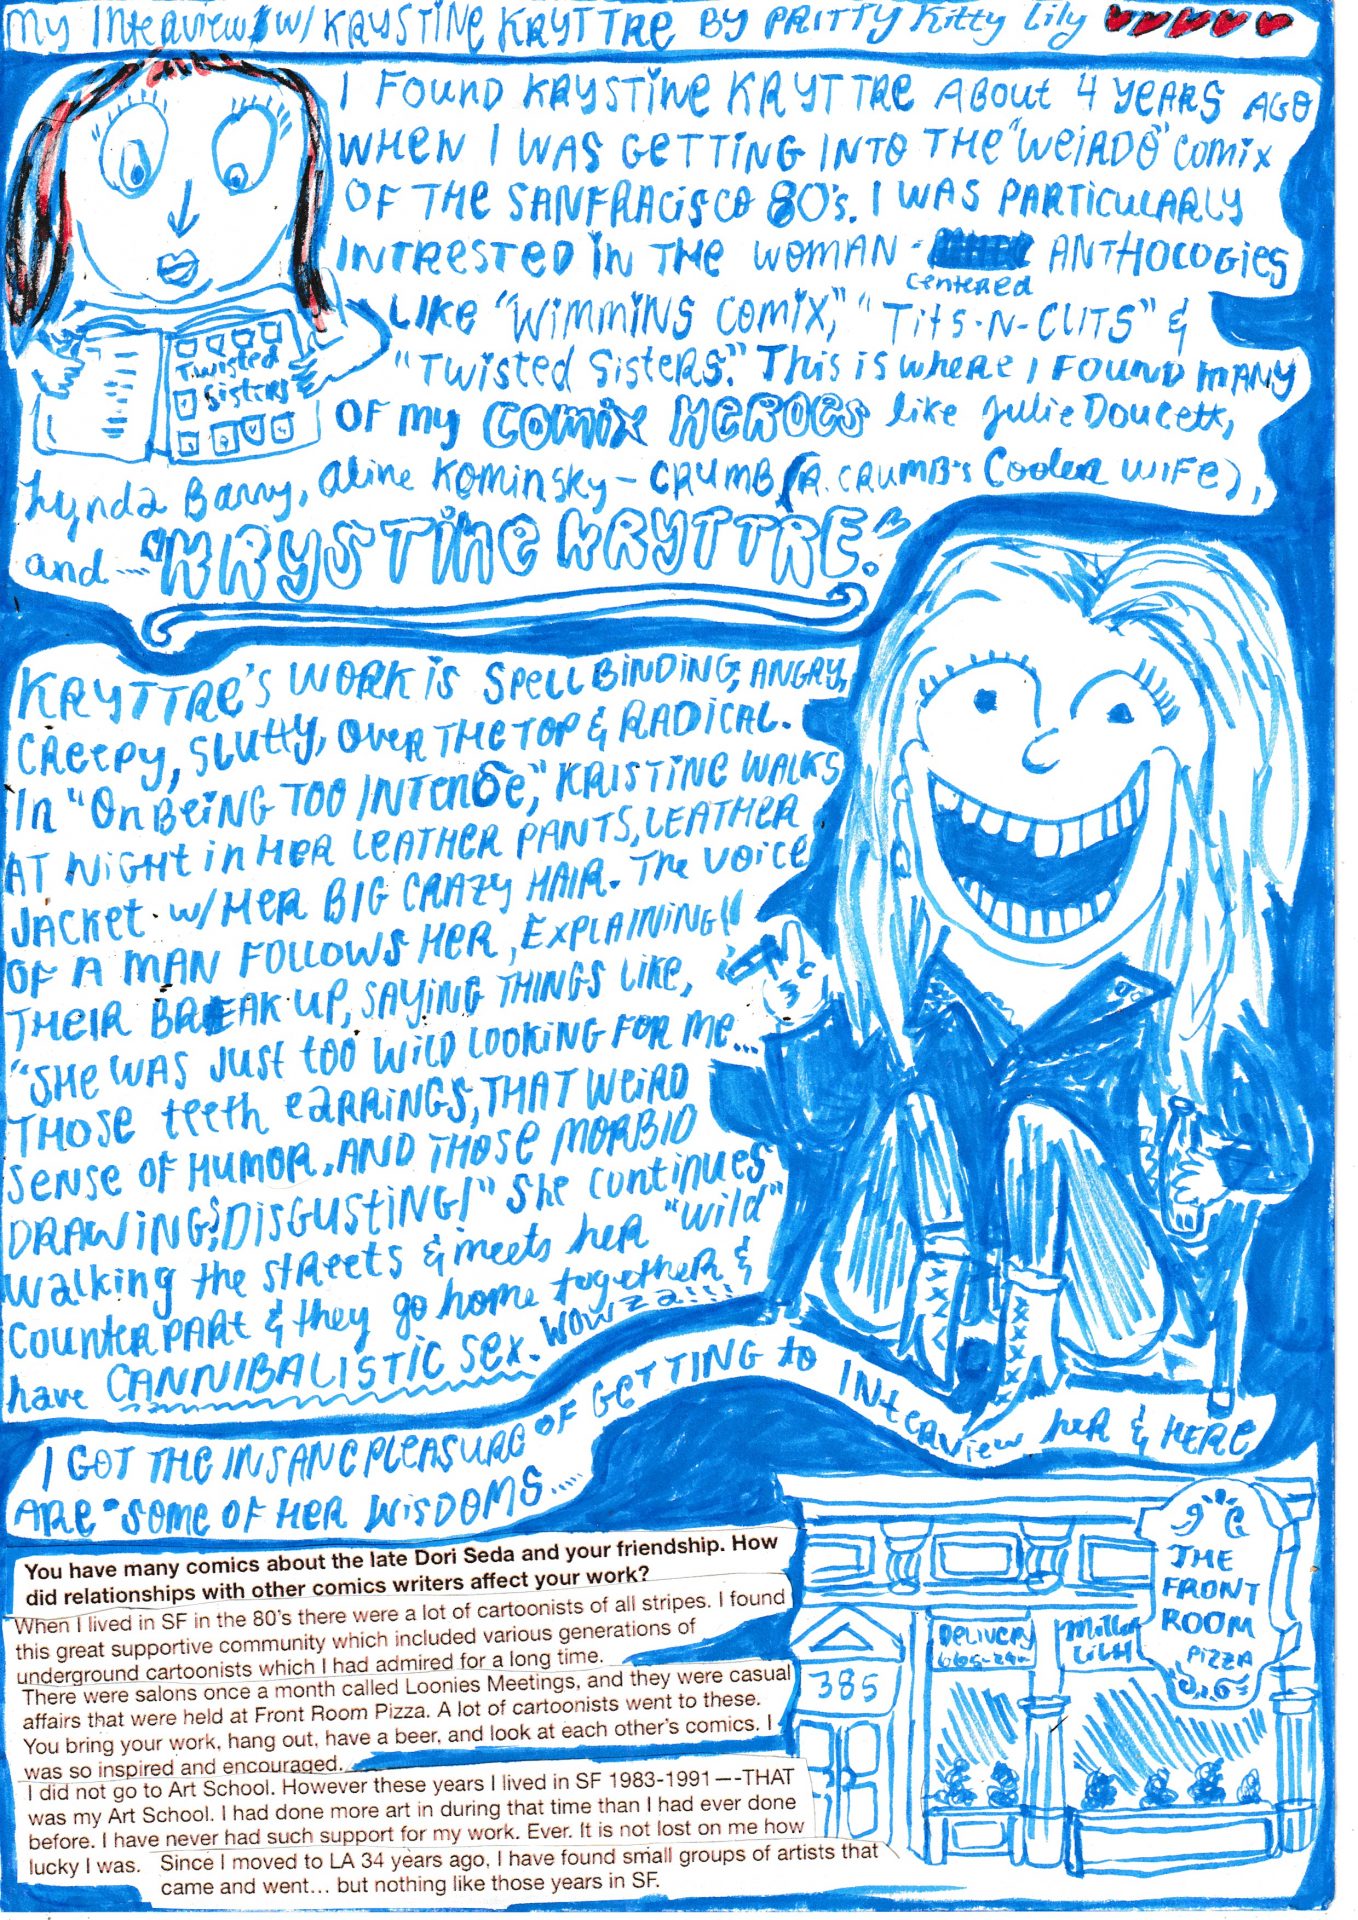 My INterviews w/ KRYSTINE KRYTTRE BY PRITTY Kitty Lily
I FOUND KRYSTINE KRYTTRE ABout 4 YEARS AGO
WHEN I WAS GETTING INTO THE "WEIRDO" Comix
OF THE SANFRACISCO 80's. I WAS PARTICULARLY
INTRESTED IN THE WOMAN - centered ANTHOLOGIES
LIKE "Wimmins Comix," "Tits-N-CLITS" &
"Twisted Sisters." This is where I FOUND MANY
OF my COMIX HEROES like Julie Doucett,
Lynda Barry, Aline Kominsky-CRUMB (R. CRUMB's Cooler WIFE),
and.... "KRYSTINE KRYTTRE."
Twisted
Sisters
KRYTTRE'S WORK IS SPELLBINDING, ANGRY,
CReepy, SLUTTY, OVER THE TOP & RADICAL.
In "On BEING TOO INTENSe," KRISTINE WALKS
AT NIGHT in HER LEATHER PANTS, LEATHER
JACKET w/HER BIG CRAZY HAIR. The VOICE
OF A MAN FOLLOWS HER, EXPLAINING
THEIR BREAK UP, SAYING THINGS LIKE,
"SHE WAS JUST too WILD LOOKING FOR ME...
THOSE teeth EARRINGS, THAT WEIRD
SENSE OF HUMOR, AND THOSE MORBID
DRAWINGS; DISGUSTING!" She continues
walking the streets & meets her "wild"
COUNTERPART & they go home together &
have CANNIBALISTIC SEX. WOWZA!!!
I GOT THE INSANE PLEASURE OF GETTING to INterview her & HERE
ARE SOME OF HER WISDOMS....
You have many comics about the late Dori Seda and your friendship. How
did relationships with other comics writers affect your work?
When I lived in SF in the 80's there were a lot of cartoonists of all stripes. I found
this great supportive community which included various generations of
underground cartoonists which I had admired for a long time.
There were salons once a month called Loonies Meetings, and they were casual
affairs that were held at Front Room Pizza. A lot of cartoonists went to these.
You bring your work, hang out, have a beer, and look at each other's comics. I
was so inspired and encouraged.
I did not go to Art School. However these years I lived in SF 1983-1991—-THAT
was my Art School. I had done more art in during that time than I had ever done
before. I have never had such support for my work. Ever. It is not lost on me how
lucky I was. Since I moved to LA 34 years ago, I have found small groups of artists that
came and went... but nothing like those years in SF.
THE
FRONT
ROOM
PIZZA
DELIVERY
385